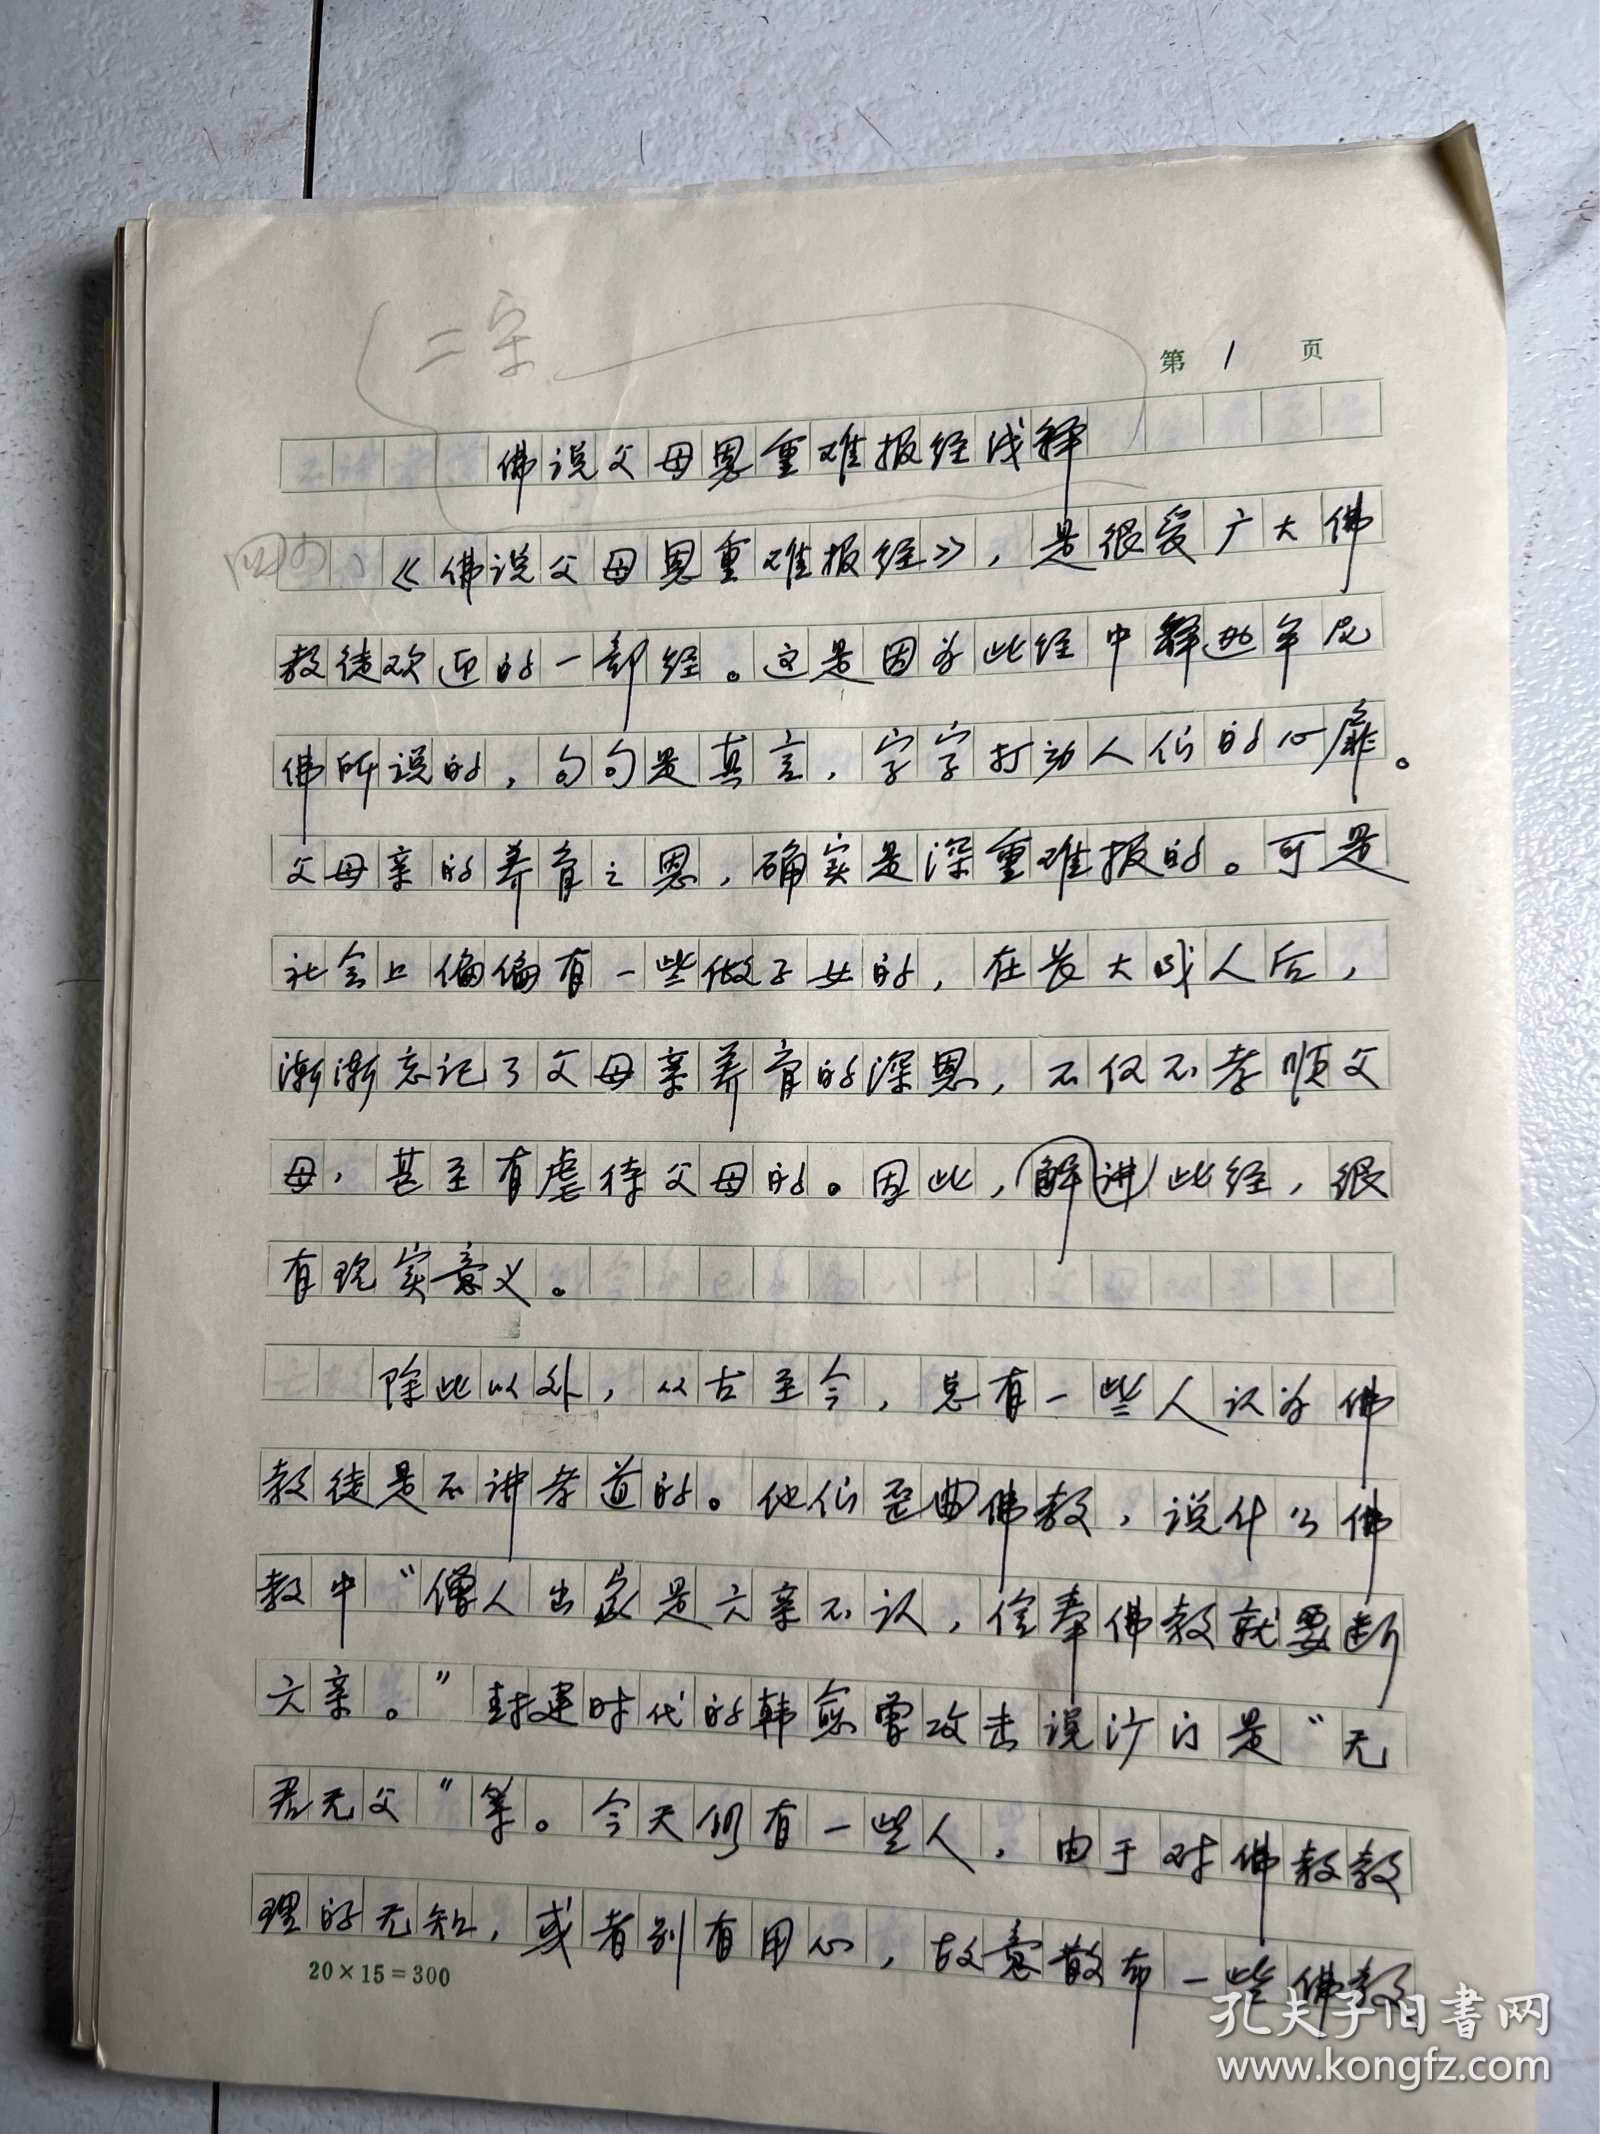 二宋
第 1 页
佛说父母恩重难报经浅释
《佛说父母恩重难报经》，是很受广大佛
教徒欢迎的一部经。这是因为此经中释迦牟尼
佛所说的，句句是真言，字字打动人们的心扉。
父母亲的养育之恩，确实是深重难报的。可是
社会上偏偏有一些做子女的，在长大成人后，
渐渐忘记了父母亲养育的深恩，不仅不孝顺父
母，甚至有虐待父母的。因此，解讲此经，很
有现实意义。
除此以外，从古至今，总有一些人认为佛
教徒是不讲孝道的。他们歪曲佛教，说什么佛
教中“僧人出家是六亲不认，信奉佛教就要断
六亲。”封建时代的韩愈曾攻击说沙门是“无
君无父”等。今天仍有一些人，由于对佛教教
理的无知，或者别有用心，故意散布一些佛教
20×15=300
孔夫子旧书网
www.kongfz.com